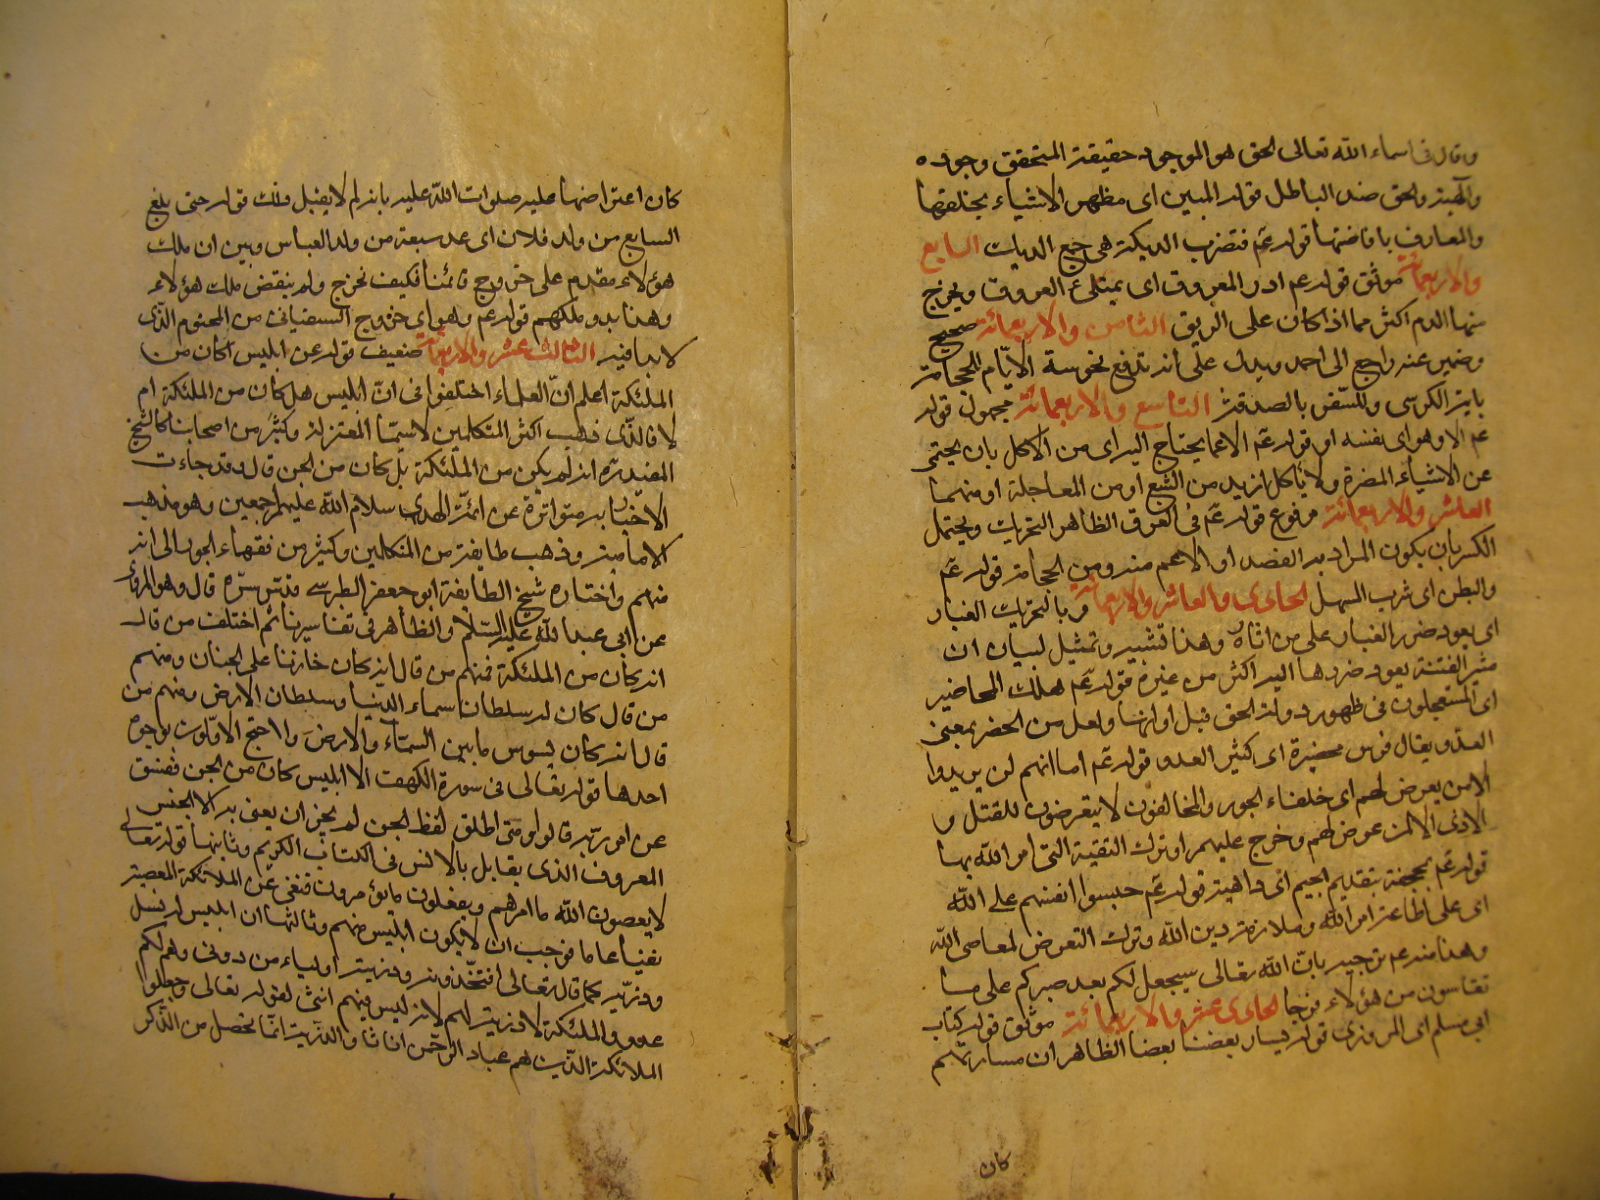 وقال في اسماء الله تعالى الحق هو الموجود حقيقة المتحقق وجوده
والهيته والحق ضد الباطل قوله المبين اى مظهر الاشياء بخلقها
والمعارف بافاضتها قوله عم فتضرب الديكة هى جمع الديك السابع
والاربعمائة موثق قوله عم ادر العروق اى يمتلئ العروق ويخرج
منها الدم اكثر مما اذا كان على الريق الثامن والاربعمائة صحيح
وضمير عنه راجع الى احمد ويدل على انه تدفع نحوسة الايام للحجامة
باية الكرسى وللسفر بالصدقة التاسع والاربعمائة مجهول قوله
عم الا وهو اى بنفسه او قوله عم الا عما يحتاج اليه اى من الاكل بان يحتمى
عن الاشياء المضرة ولا ياكل ازيد من الشبع او من المعالجة او منهما
العاشر والاربعمائة مرفوع قوله عم فى العرق الظاهر التحريك ويحتمل
الكسر بان يكون المراد به الفصد او الاعم منه ومن الحجامة قوله عم
والبطن اى شرب المسهل الحادى والعاشر والاربعمائة قر بالتحريك الغبار
اى يعود ضرر الغبار على من اثاره وهذا تشبيه وتمثيل لبيان ان
مثير الفتنة يعود ضررها اليه اكثر من غيره قوله عم هلك المحاضير
اى المستعجلون فى ظهور دولة الحق قبل اوانها ولعل من الحضر بمعنى
العدو يقال فرس محضيرة اى كثير العدو قوله عم اما انهم لن يريدوا
الا من يعرض لهم اى خلفاء الجور والمخالفون لا يتعرضون للقتل و
الاذى الا لمن عرض لهم وخرج عليهم او ترك التقية التى امر الله بها
قوله عم بمجحفة بتقديم الجيم اى داهية قوله عم حبسوا انفسهم على الله
اى على اطاعة امر الله وملازمة دين الله وترك التعرض لمعاصى الله
وهذا منه عم ترجيه بان الله تعالى سيجعل لكم بعد صبركم على ما
تقاسون من هؤلاء فرجا الحادى عشر والاربعمائة موثق قوله كتاب
ابى مسلم اى المروزى قوله يسار بعضنا بعضا الظاهر ان مسارتهم
كان
كان اعتراضها عليه صلوات الله عليه بانه لم لا يقبل ذلك قوله حتى بلغ
السابع من ولد فلان اى عد سبعة من ولد العباس وبين ان ملك
هؤلاء مقدم على خروج قائمنا فكيف نخرج ولم ينقض ملك هؤلاء
وهذا بدو ملكهم قوله عم وهو اى خروج السفيانى من المحتوم الذى
لا بدا فيه الثالث عشر والاربعمائة ضعيف قوله عن ابليس اكان من
الملئكة اعلم ان العلماء اختلفوا فى ان ابليس هل كان من الملئكة ام
لا فالذى ذهب اكثر المتكلمين لا سيما المعتزلة وكثير من اصحابنا كالشيخ
المفيد ره انه لم يكن من الملئكة بل كان من الجن قال وقد جاءت
الاخبار به متواترة عن ائمة الهدى سلام الله عليهم اجمعين وهو مذهب
الامامية وذهب طايفة من المتكلمين وكثير من فقهاء الجمهور الى انه
منهم واختاره شيخ الطايفة ابو جعفر الطوسى قدس سره قال وهو المروى
عن ابى عبد الله عليه السلام والظاهر فى تفاسيرنا ثم اختلف من قال
انه كان من الملئكة فمنهم من قال انه كان خازنا على الجنان ومنهم
من قال كان له سلطان سماء الدنيا وسلطان الارض ومنهم من
قال انه كان يسوس ما بين السماء والارض واحتج الاولون بوجوه
احدها قوله تعالى فى سورة الكهف الا ابليس كان من الجن ففسق
عن امر ربه قالوا ومتى اطلق لفظ الجن لم يجز ان يعنى به الا الجنس
المعروف الذى يقابل بالانس فى الكتاب الكريم وثانيها قوله تعالى
لا يعصون الله ما امرهم ويفعلون ما يؤمرون فنفى عن الملائكة المعصية
نفيا عاما فوجب ان لا يكون ابليس منهم وثالثها ان ابليس له نسل
وذرية كما قال تعالى افتتخذونه وذريته اولياء من دونى وهم لكم
عدو والملئكة لا ذرية لهم لانه ليس فيهم انثى لقوله تعالى وجعلوا
الملائكة الذين هم عباد الرحمن اناثا والذرية انما تحصل من الذكر